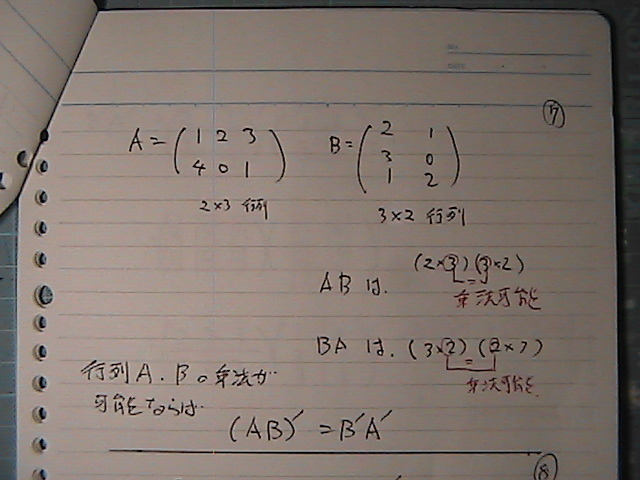 ⑦
A = ( 1 2 3
4 0 1 )
2×3 行列
B = ( 2 1
3 0
1 2 )
3×2 行列
AB は. (2×3)(3×2)
=
乗法可能
BA は. (3×2)(2×3)
=
乗法可能
行列A.Bの乗法が
可能ならば
(AB)′ = B′A′
⑧